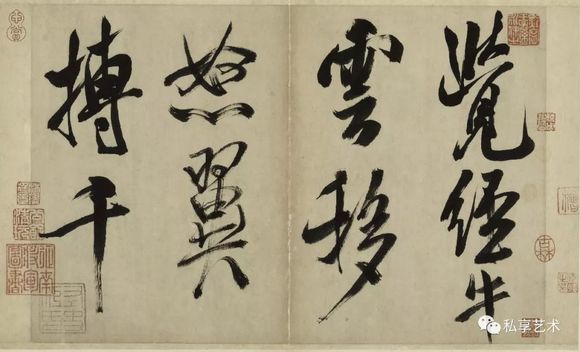 覺經牛
雲移
怒翼
搏千
私享艺术